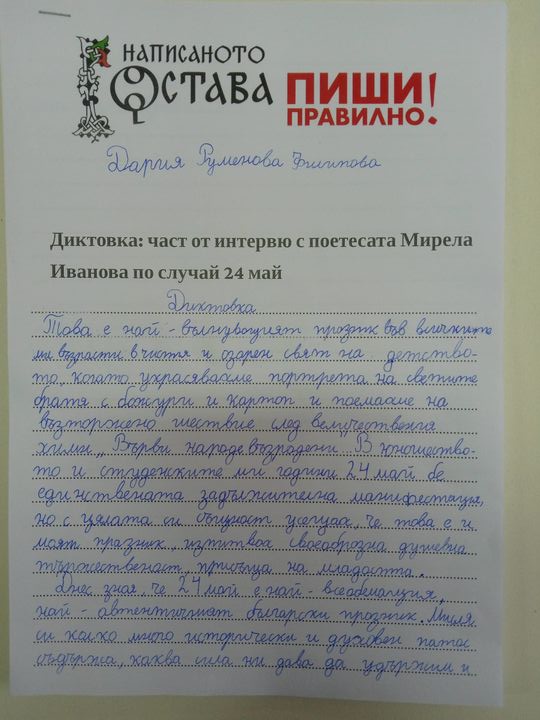 НАПИСАНОТО
ОСТАВА
ПИШИ
ПРАВИЛНО!
Дария Руменова Филипова
Диктовка: част от интервю с поетесата Мирела
Иванова по случай 24 май
Диктовка
Това е най - вълнуващият празник във всичките
ми възрасти в чистия и озарен свят на детство-
то, когато украсявахме портрета на светите
братя с божури и картон и поемахме на
възторжено шествие след величествения
химн „Върви народе възродени". В юношество-
то и студенските ми години 24 май бе
единствената задължителна манифестация,
но с цялата си същност усещах, че това е и
моят празник, изпитвах своеобразна душевна
тържественост, присъща на младостта.
Днес зная, че 24 май е най - всеобемащия,
най - автентичният български празник. Мисля
си колко много исторически и духовен патос
съдържа, каква сила ни дава да удържим и